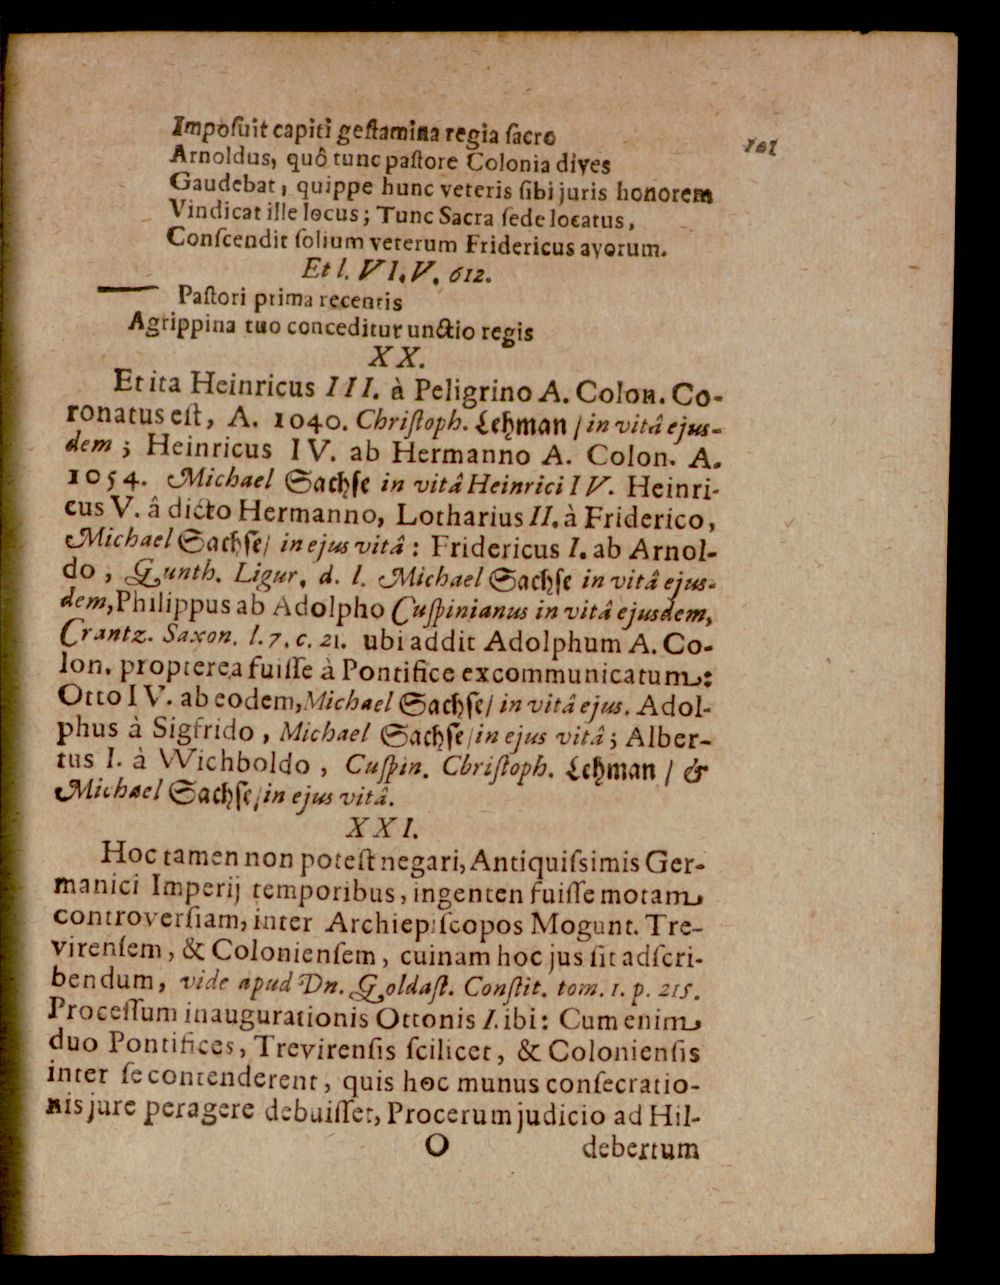 Impòſuit capiti geſtamina regia ſacro
101
Arnoldus, quô tunc paſtore Colonia dives
Gaudebat, quippe hunc veteris ſibi juris honorem
Vindicat ille locus; Tunc Sacra ſede locatus,
Conſcendit ſolium veterum Fridericus avorum.
Et l. VI. V. 612.
Paſtori prima recentis
Agrippina tuo conceditur unctio regis
XX.
Et ita Heinricus III. à Peligrino A. Colon. Co-
ronatus eſt, A. 1040. Chriſtoph. Lehman / in vitâ ejus-
dem; Heinricus IV. ab Hermanno A. Colon. A.
1054. Michael Sachſe in vitâ Heinrici IV. Heinri-
cus V. â dicto Hermanno, Lotharius II. à Friderico,
Michael Sachſe / in ejus vitâ: Fridericus I. ab Arnol-
do, Gunth. Ligur. d. l. Michael Sachſe in vitâ ejus-
dem, Philippus ab Adolpho Cuſpinianus in vitâ ejusdem,
Crantz. Saxon. l. 7. c. 21. ubi addit Adolphum A. Co-
lon. propterea fuiſſe à Pontifice excommunicatum:
Otto IV. ab eodem, Michael Sachſe / in vitâ ejus. Adol-
phus à Sigfrido, Michael Sachſe / in ejus vitâ; Alber-
tus I. à Wichboldo, Cuſpin. Chriſtoph. Lehman / &
Michael Sachſe / in ejus vitâ.
XXI.
Hoc tamen non poteſt negari, Antiquiſsimis Ger-
manici Imperij temporibus, ingenten fuiſſe motam
controverſiam, inter Archiepiſcopos Mogunt. Tre-
virenſem, & Colonienſem, cuinam hoc jus ſit adſcri-
bendum, vide apud Dn. Goldaſt. Conſtit. tom. 1. p. 215.
Proceſſum inaugurationis Ottonis I. ibi: Cum enim
duo Pontifices, Trevirenſis ſcilicet, & Colonienſis
inter ſe contenderent, quis hoc munus conſecratio-
nis jure peragere debuiſſet, Procerum judicio ad Hil-
O debertum